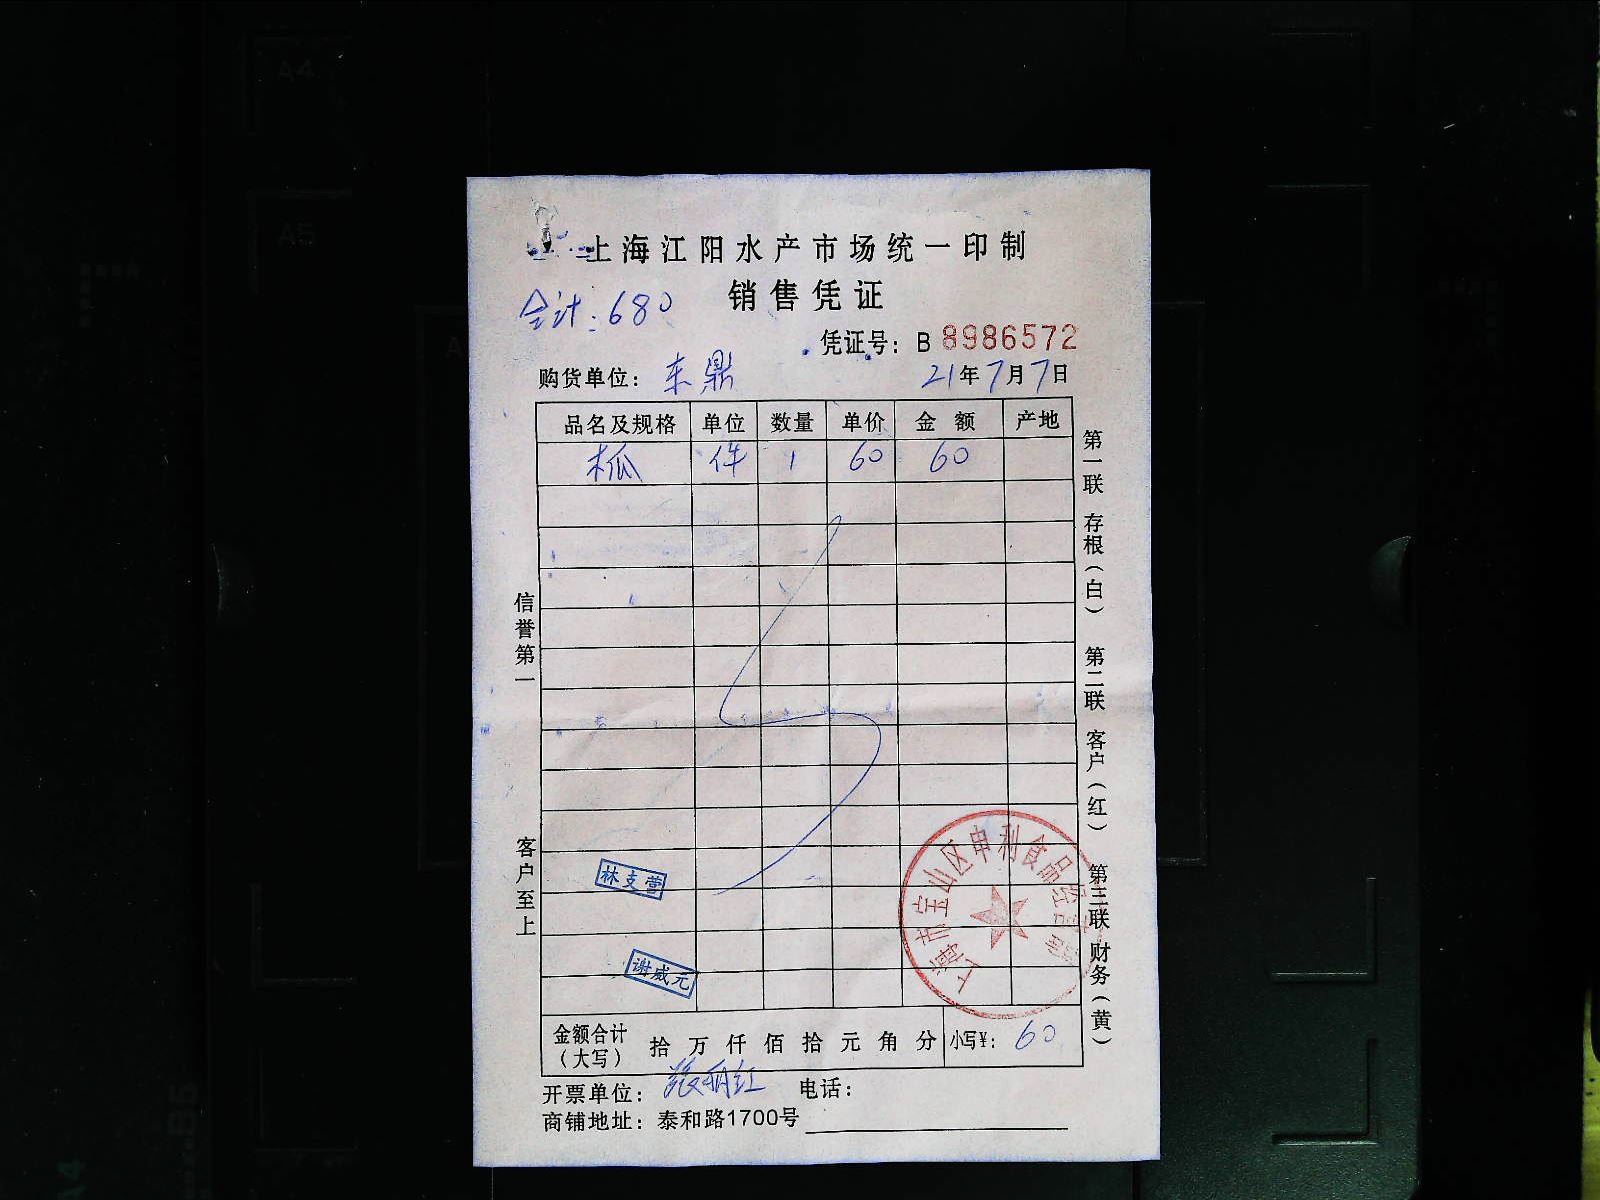 上海江阳水产市场统一印制
销售凭证
合计:680
凭证号:B 8986572
购货单位:东鼎 21年7月7日
品名及规格 单位 数量 单价 金额 产地
木瓜 件 1 60 60
信誉第一
客户至上
第一联 存根(白) 第二联 客户(红) 第三联 财务(黄)
林支营
谢威元
上海市宝山区申利食品经营部
金额合计(大写) 拾 万 仟 佰 拾 元 角 分 小写¥:60
开票单位:张丽红 电话:
商铺地址:泰和路1700号
A4
A5